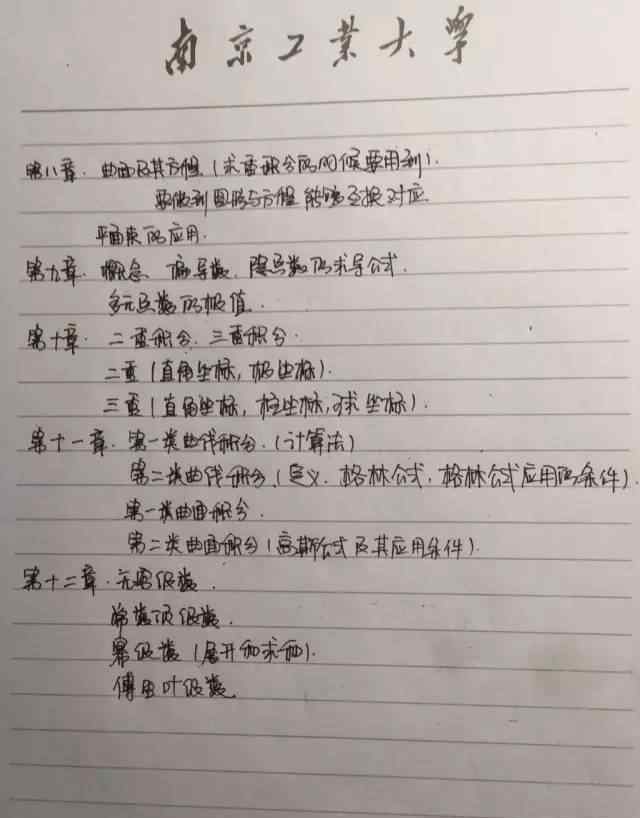 南京工业大学
第八章. 曲面及其方程 (求重积分的时候要用到).
要做到图形与方程 能够互换对应
平面束的应用.
第九章. 概念. 偏导数. 隐函数的求导公式.
多元函数的极值.
第十章. 二重积分. 三重积分.
二重 (直角坐标, 极坐标).
三重 (直角坐标, 柱坐标, 球坐标).
第十一章. 第一类曲线积分. (计算法)
第二类曲线积分. (定义. 格林公式. 格林公式应用的条件).
第一类曲面积分.
第二类曲面积分 (高斯公式及其应用条件).
第十二章. 无穷级数.
常数项级数.
幂级数 (展开和求和).
傅里叶级数